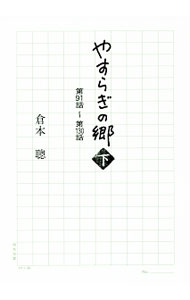 やすらぎの郷
下
第91話―第130話
倉本 聰